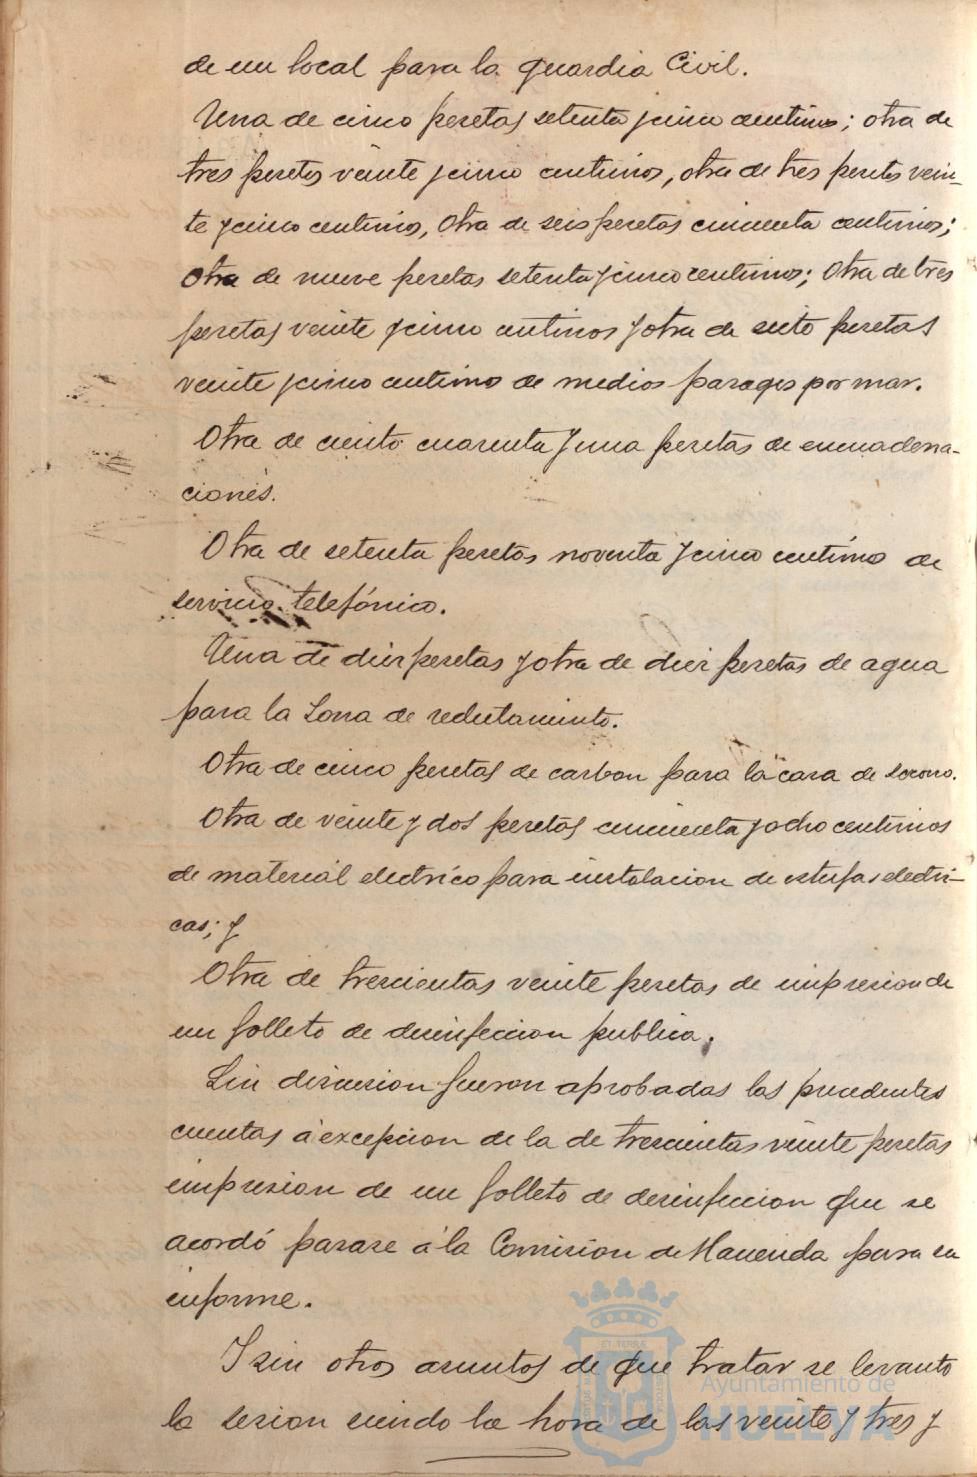 de un local para la guardia Civil.
Una de cinco pesetas setenta y cinco centimos; otra de
tres pesetas veinte y cinco centimos, otra de tres pesetas vein-
te y cinco centimos, Otra de seis pesetas cincuenta centimos;
Otra de nueve pesetas setenta y cinco centimos; Otra de tres
pesetas veinte y cinco centimos y otra de siete pesetas
veinte y cinco centimos de medios pasages por mar.
Otra de ciento cuarenta y una pesetas de encuaderna-
ciones.
Otra de setenta pesetas noventa y cinco centimos de
servicio telefónico.
Una de diez pesetas y otra de diez pesetas de agua
para la Zona de reclutamiento.
Otra de cinco pesetas de carbon para la casa de socorro.
Otra de veinte y dos pesetas cincuenta y ocho centimos
de material electrico para instalacion de estufas electri-
cas; y
Otra de trescientas veinte pesetas de impresion de
un folleto de desinfeccion publica.
Sin discusion fueron aprobadas las precedentes
cuentas á excepcion de la de trescientas veinte pesetas
impresion de un folleto de desinfeccion que se
acordó pasase á la Comision de Hacienda para su
informe.
Y sin otros asuntos de que tratar se levanto
la sesion siendo la hora de las veinte y tres y
Ayuntamiento de
HUELVA